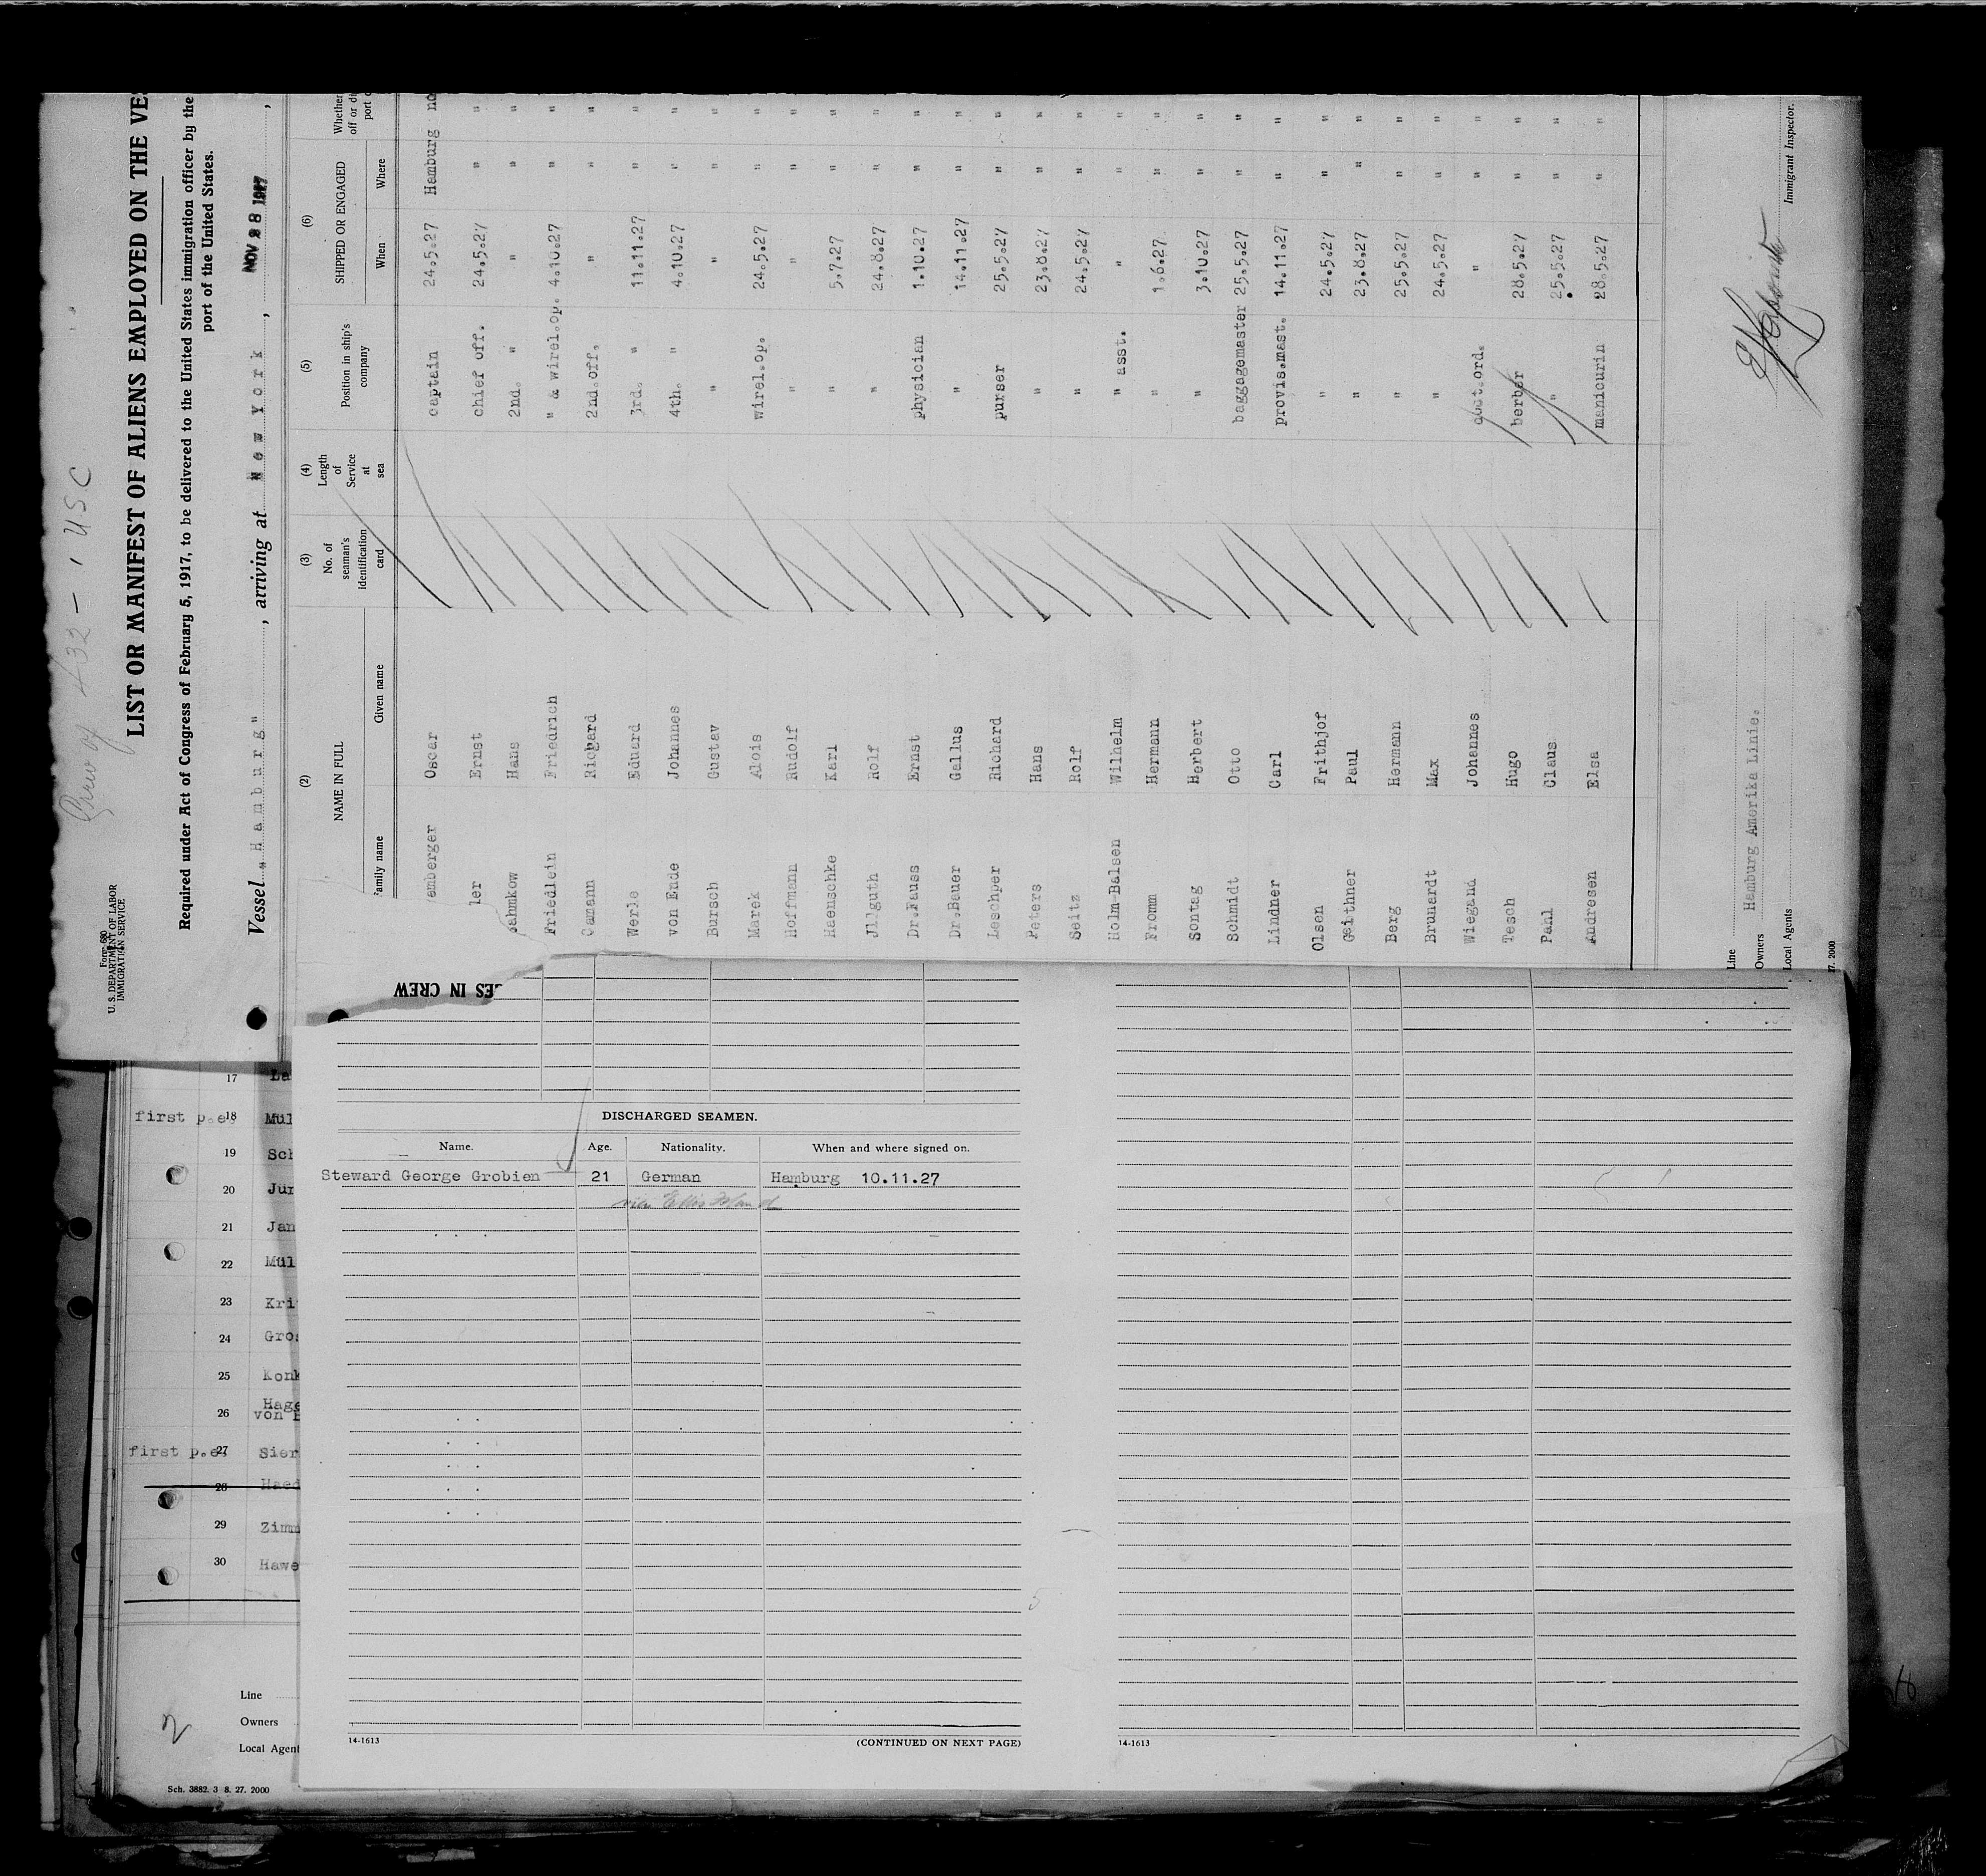 Crew of 432 - 1 USC
Form 680
U. S. DEPARTMENT OF LABOR
IMMIGRATION SERVICE
LIST OR MANIFEST OF ALIENS EMPLOYED ON THE VE
Required under Act of Congress of February 5, 1917, to be delivered to the United States immigration officer by the
port of the United States.
Vessel "Hamburg", arriving at New York, NOV 28 1927,
(2) (3) (4) (5) (6)
NAME IN FULL No. of seaman's identification card Length of Service at sea Position in ship's company SHIPPED OR ENGAGED Whether
off or di
port o
Family name Given name When Where
emberger Oscar captain 24.5.27 Hamburg no
ler Ernst chief off. 24.5.27 " "
ahmkow Hans 2nd. " " " "
Friedlein Friedrich " & wirel.op. 4.10.27 " "
Oemann Richard 2nd.off. " " "
Werle Eduard 3rd. " 11.11.27 " "
von Ende Johannes 4th. " 4.10.27 " "
Bursch Gustav " " " "
Marek Alois wirel.op. 24.5.27 " "
Hoffmann Rudolf " " " "
Haenschke Karl " 5.7.27 " "
Jllguth Rolf " 24.8.27 " "
Dr.Fauss Ernst physician 1.10.27 " "
Dr.Bauer Gallus " 14.11.27 " "
Leschper Richard purser 25.5.27 " "
Peters Hans " 23.8.27 " "
Seitz Rolf " 24.5.27 " "
Holm-Balsen Wilhelm " asst. " " "
Fromm Hermann " 1.6.27 " "
Sontag Herbert " 3.10.27 " "
Schmidt Otto baggagemaster 25.5.27 " "
Lindner Carl provis.mast. 14.11.27 " "
Olsen Frithjof " 24.5.27 " "
Geithner Paul " 23.8.27 " "
Berg Hermann " 25.5.27 " "
Brunardt Max " 24.5.27 " "
Wiegand Johannes " " "
Tesch Hugo berber 28.5.27 " "
Pahl Claus " 25.5.27 " "
Andresen Elsa manicurin 28.5.27 " "
Line
Owners Hamburg Amerika Linie.
Local Agents
Immigrant Inspector.
27. 2000
ES IN CREW
DISCHARGED SEAMEN.
Name. Age. Nationality. When and where signed on.
Steward George Grobien 21 German Hamburg 10.11.27
via Ellis Island
14-1613 (CONTINUED ON NEXT PAGE) 14-1613
17 La
first p.e. 18 Mül
19 Sch
20 Jür
21 Jan
22 Mül
23 Kri
24 Gros
25 Konk
26 Hage
von
first p.e. 27 Sier
28 Haed
29 Zimm
30 Hawe
Line
Owners
Local Agent
2
Sch. 3882. 3 8. 27. 2000